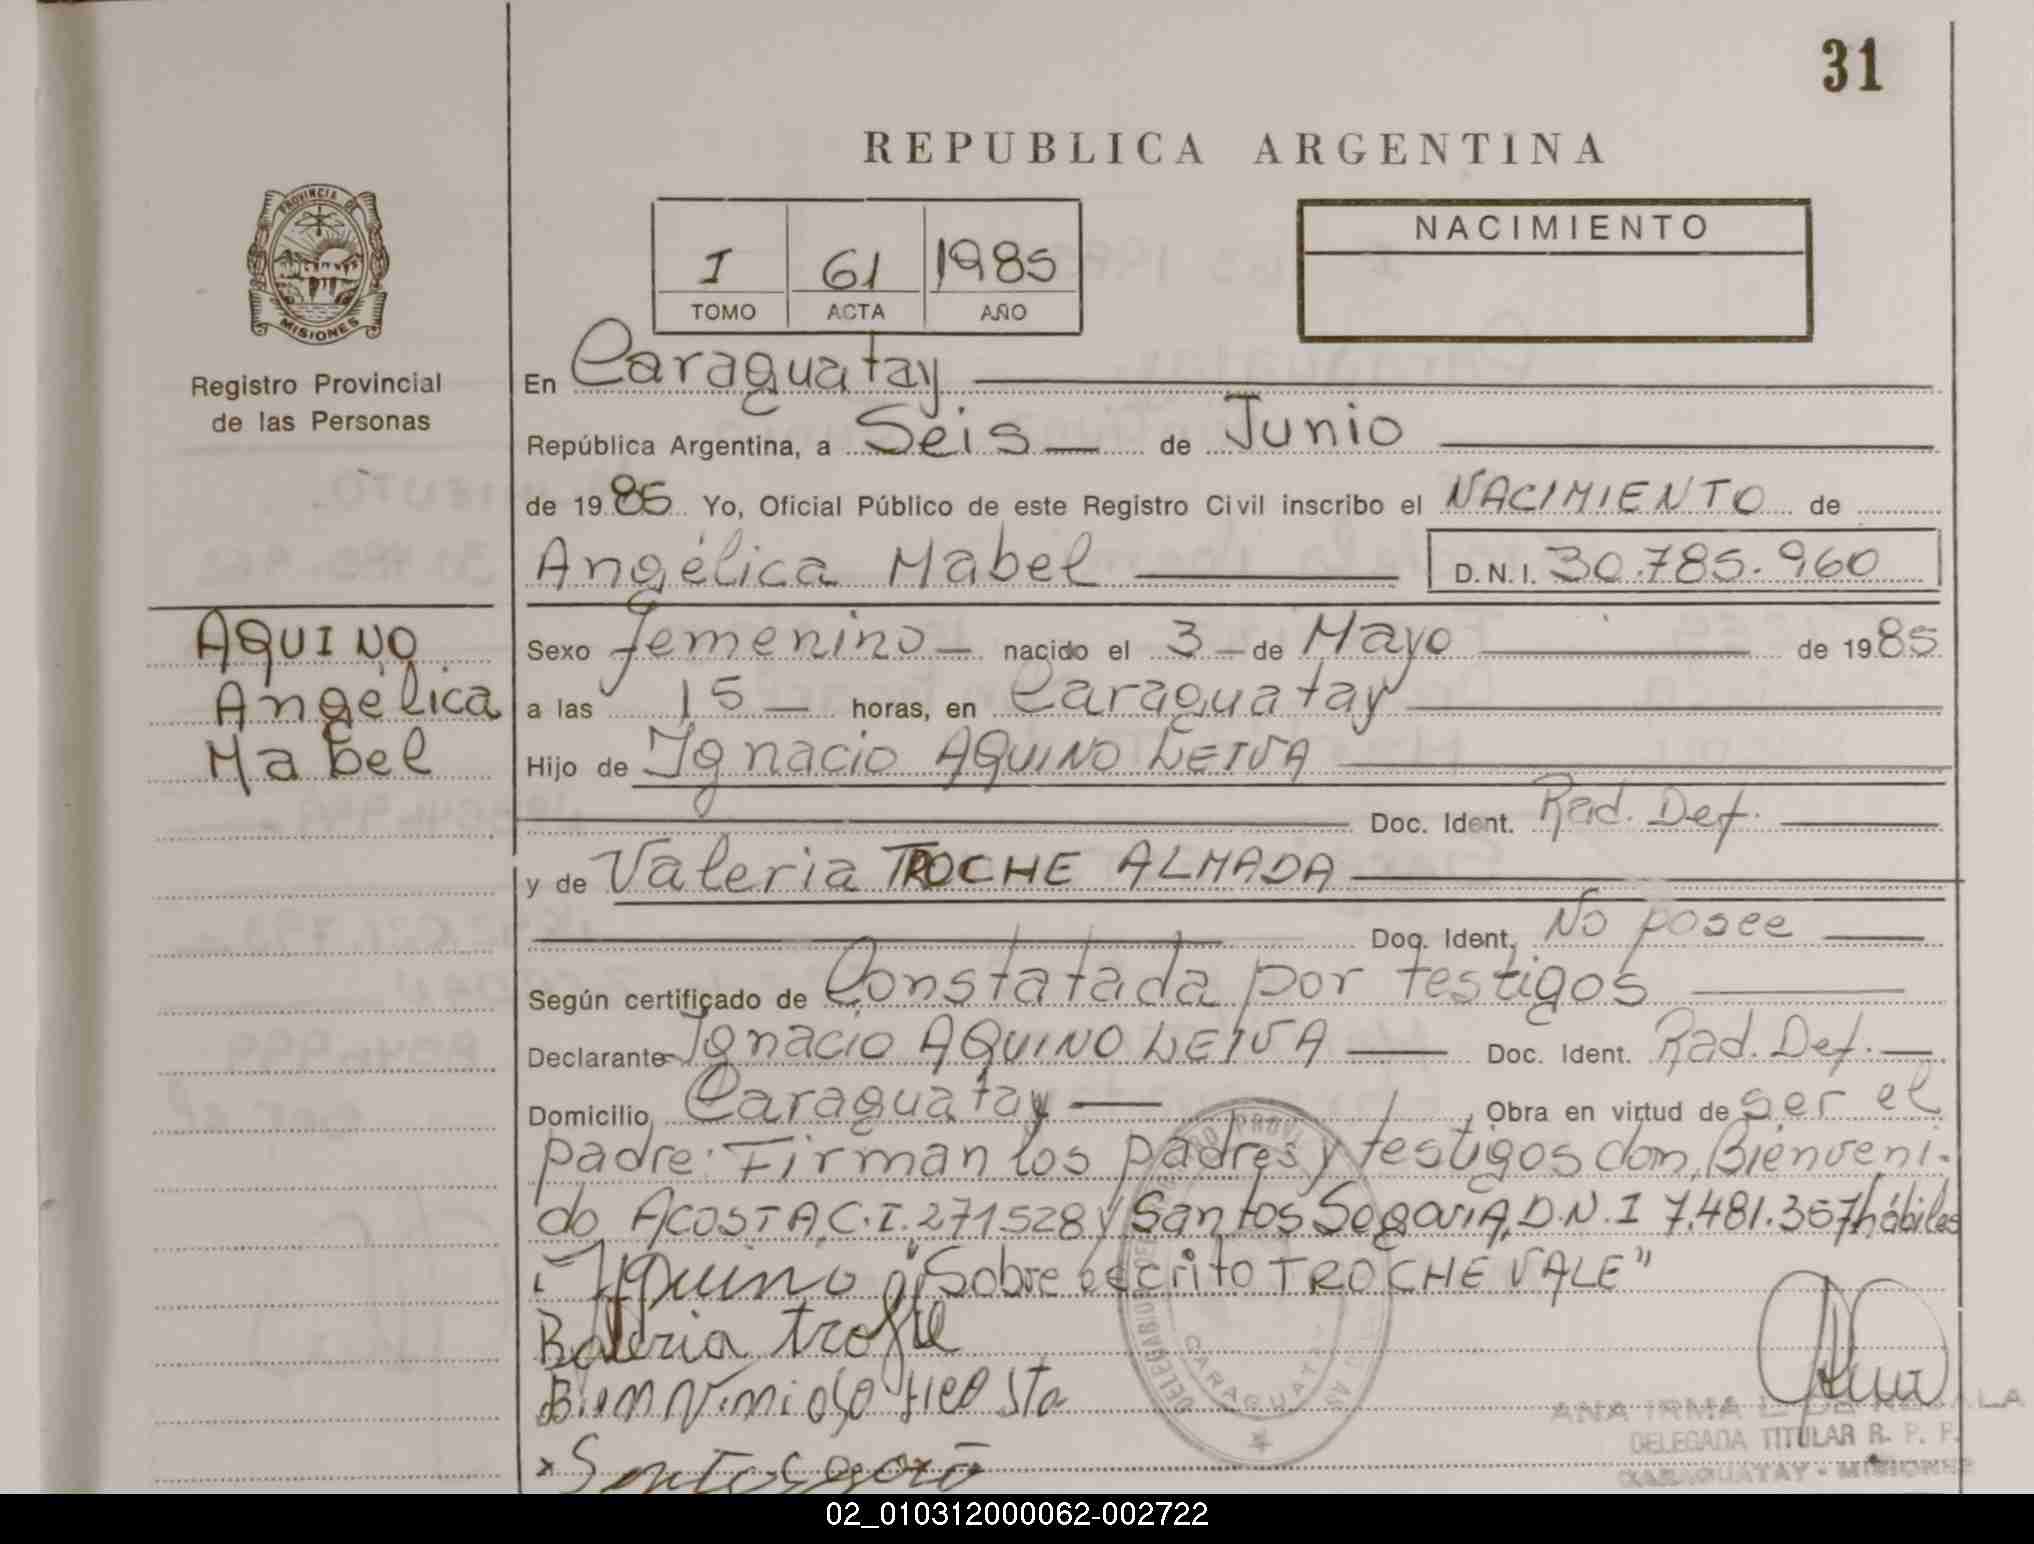 31
REPUBLICA ARGENTINA
PROVINCIA DE
MISIONES
Registro Provincial
de las Personas
I 61 1985
TOMO ACTA AÑO
NACIMIENTO
En Caraguatay
República Argentina, a Seis de Junio
de 1985 Yo, Oficial Público de este Registro Civil inscribo el NACIMIENTO de
Angélica Mabel D.N.I. 30.785.960
AQUINO
Angélica
Mabel
Sexo femenino nacido el 3 de Mayo de 1985
a las 15 horas, en Caraguatay
Hijo de Ignacio AQUINO LEIVA
Doc. Ident. Rad. Def.
y de Valeria TROCHE ALMADA
Doc. Ident. No posee
Según certificado de Constatada por testigos
Declarante Ignacio AQUINO LEIVA Doc. Ident. Rad. Def.
Domicilio Caraguatay Obra en virtud de ser el
padre: Firman los padres y testigos don Bienveni-
do ACOSTA, C.I. 271528 y Santos Segovia, D.N.I 7.481.367 hábiles
Aquino "Sobre escrito TROCHE VALE"
Baleria trofle
CARAGUATAY
ANA IRMA L. DE
DELEGADA TITULAR R. P. P.
CARAGUATAY - MISIONES
02_010312000062-002722